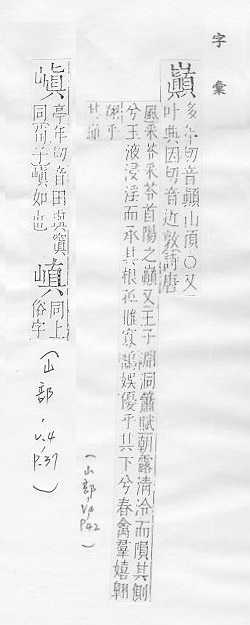 字彙
巔多年切音顛山頂○又
叶典因切音近敦詩唐
風采苓采苓首陽之巔又王子淵洞簫賦朝露清泠而隕其側
兮玉液浸淫而承其根孤雌寡鶴娛優乎其下兮春禽羣嬉翱
翔乎
其顛
(山部,v4
P42)
嵮亭年切音田與窴
同荀子嵮如也 嵮同上
俗字
(山部,v.4,
p.37)